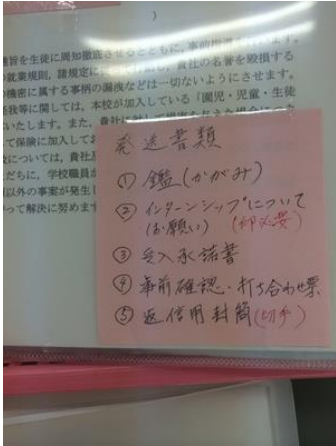 旨を生徒に周知徹底させるとともに、事前指導を
就業規則、諸規定に
貴社の名誉を毀損する
機密に属する事柄の漏洩などは一切ないようにさせます。
我等に関しては、本校が加入している「園児・児童・生徒
いたします。また、貴社に
て保険に加入してお
については、貴社
だちに、学校職員が
以外の事案が発生し
って解決に努めます
発送書類
① 鑑(かがみ)
② インターンシップについて
(お願い)(印必要)
③ 受入承諾書
④ 事前確認・打ち合わせ票
⑤ 返信用封筒(切手)